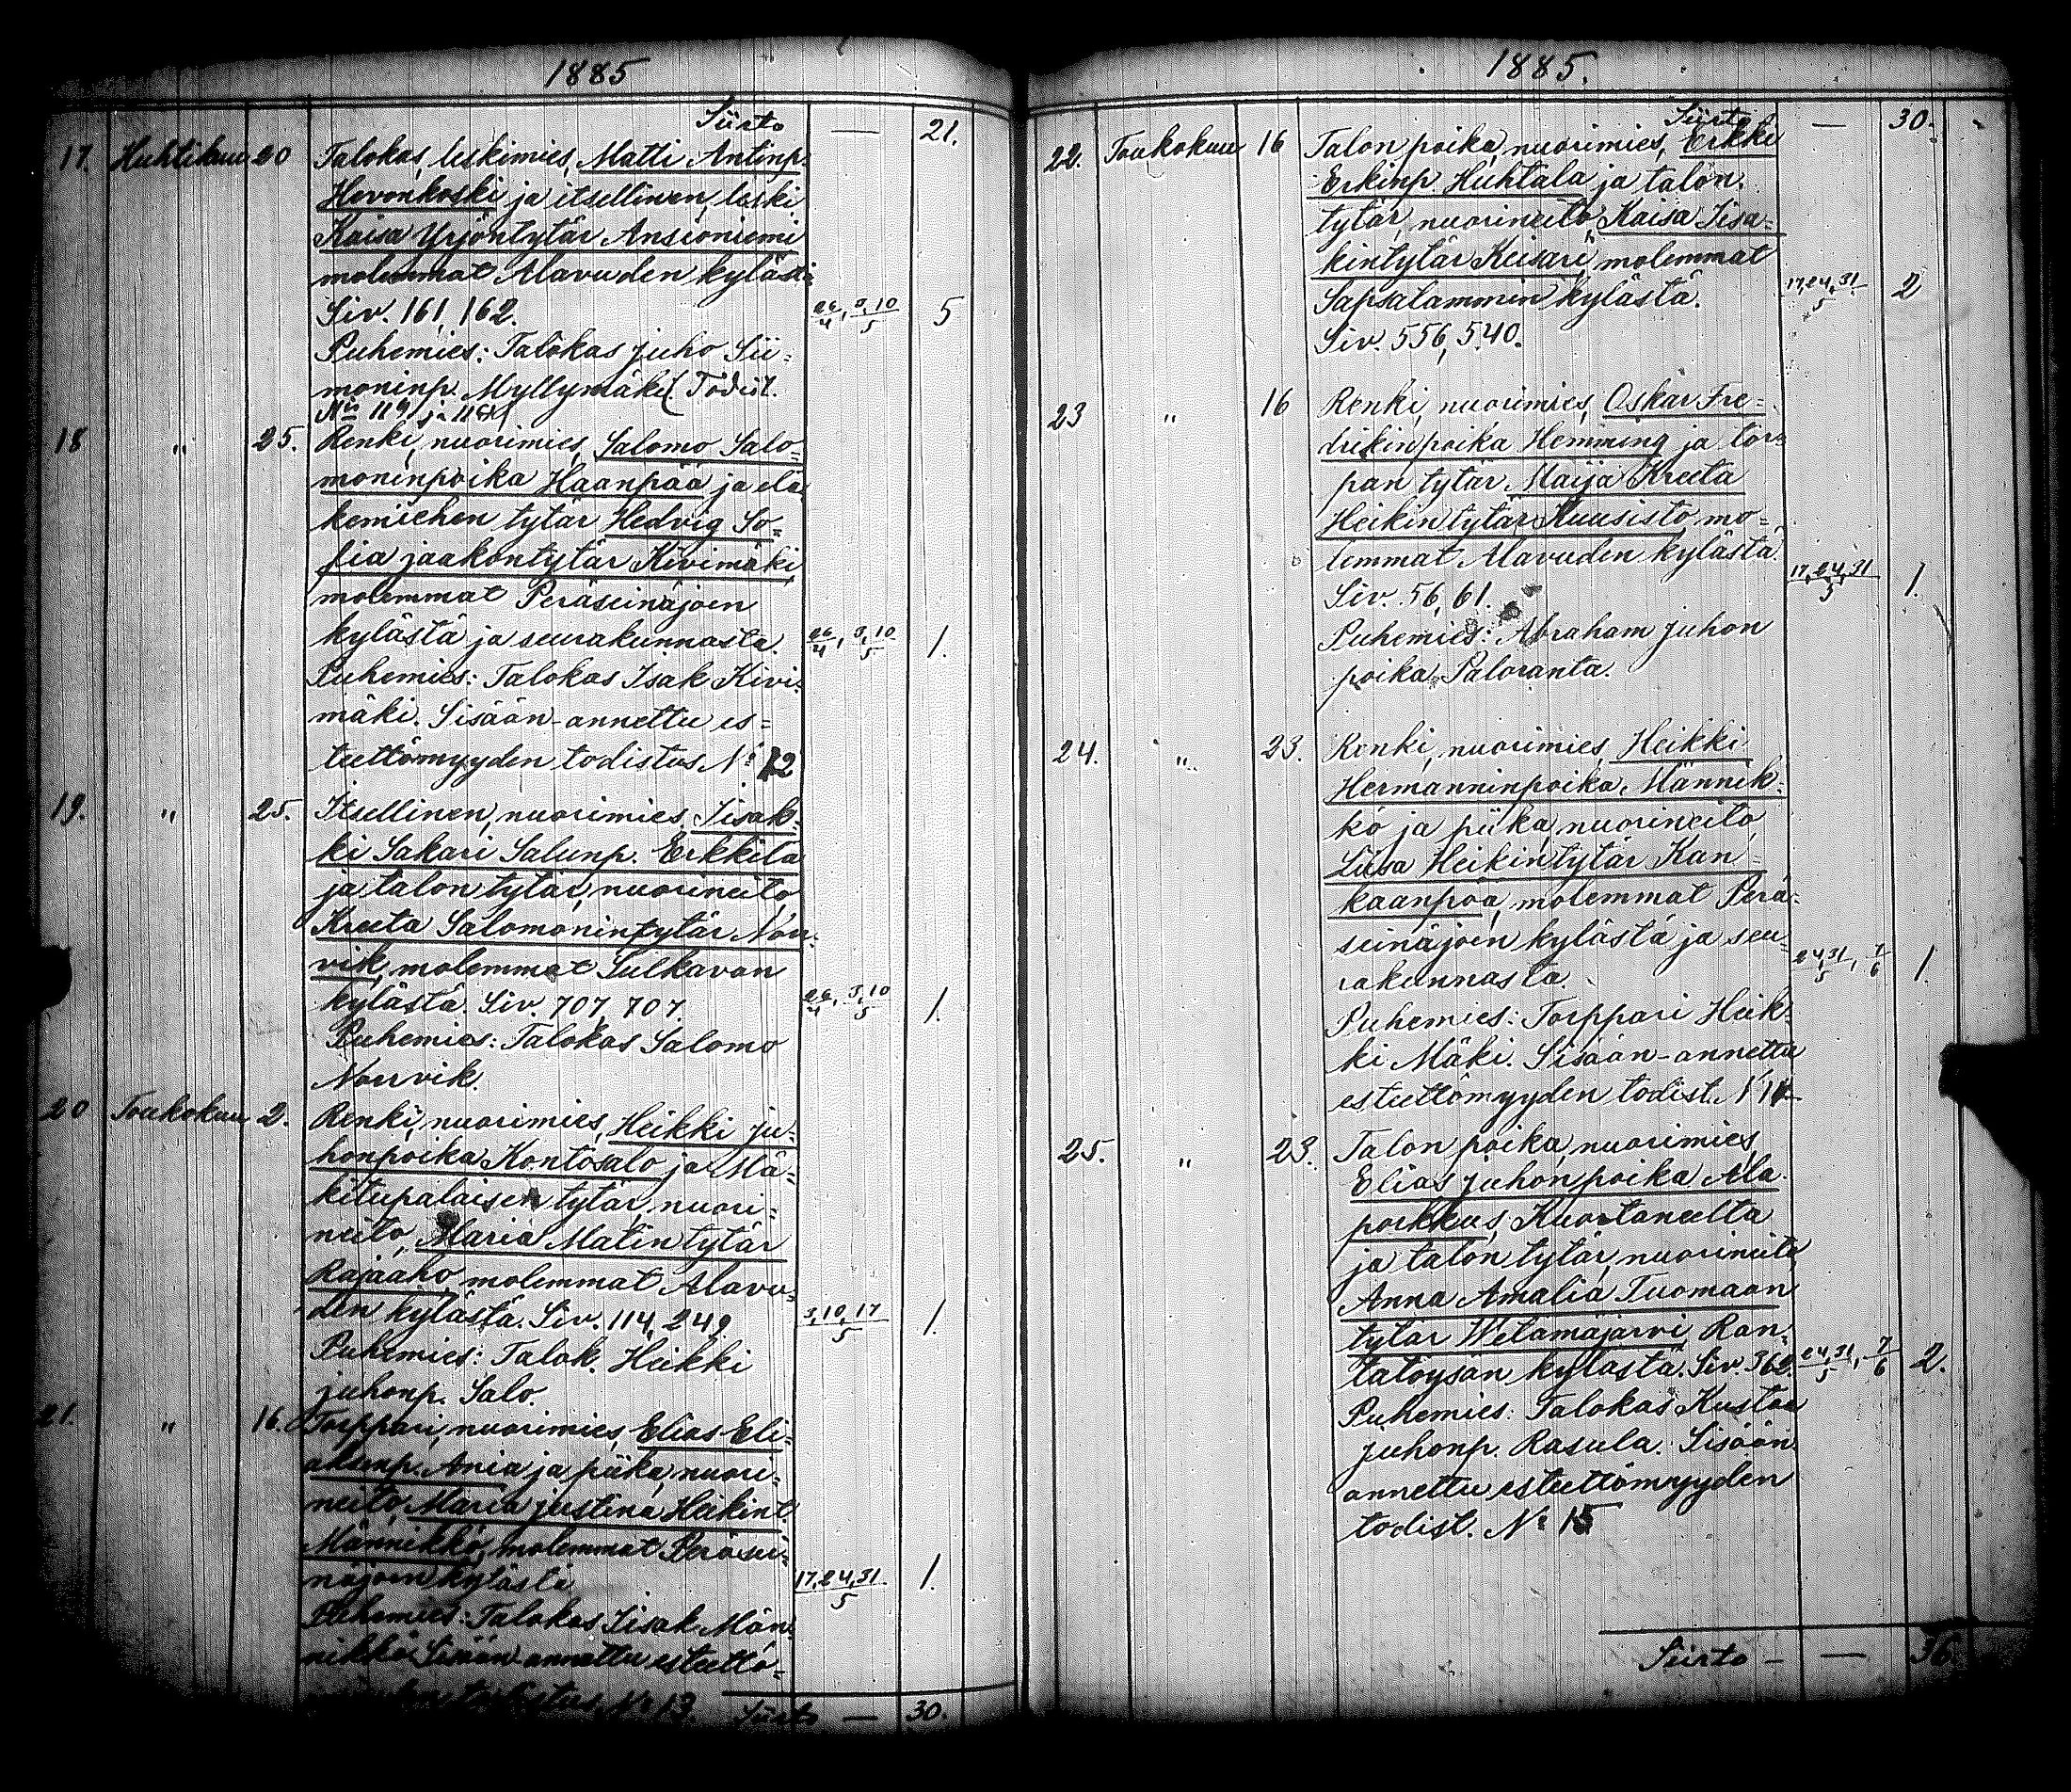 1885
Siirto — 21.
17. Huhtikuu 20 Talokas, leskimies, Matti Antinp.
Hevonkoski ja itsellinen, leski
Kaisa Yrjöntytär Ansioniemi
molemmat Alavuden kylästä
Siv. 161, 162. 26/4, 3,10/5 5
Puhemies: Talokas Juho Sii=
moninp. Myllymäki (Todist.
Nis 119 ja
18 " 25. Renki, nuorimies, Salomo Salo=
moninpoika Haanpää ja elä
kemiehen tytär Hedvig So=
fia Jaakontytär Kivimäki
molemmat Peräseinäjoen
kylästä ja seurakunnasta. 26/4, 3,10/5 1.
Puhemies: Talokas Isak Kivi=
mäki. Sisään-annettu es=
teettömyyden todistus No 12
19. " 25. Itsellinen, nuorimies, Iisak=
ki Sakari Salunp. Erkkilä
ja talon tytär, nuorineito,
Kreeta Salomonintytär Nor=
vik, molemmat Sulkavan
kylästä. Siv. 707, 707. 26/4, 3,10/5 1.
Puhemies: Talokas Salomo
Norvik.
20 Toukokuu 2. Renki, nuorimies, Heikki Ju=
honpoika Kontosalo ja Mä=
kitupalaisen tytär, nuori=
neito, Maria Matintytär
Rajaaho molemmat Alavu=
den kylästä. Siv. 114, 249. 3,10,17/5 1.
Puhemies: Talok. Heikki
Juhonp. Salo.
21. " 16. Torppari, nuorimies, Elias Eli=
aksenp. Ania ja piika, nuori=
neito, Maria Justina Heikint.
Männikkö, molemmat Peräsei=
näjoen kylästä 17,24,31/5 1.
Puhemies: Talokas Iisak Män=
nikkö Sisään annettu esteettö=
todistus No 13. Siirto — 30.
1885.
Siirto — 30.
22. Toukokuu 16 Talon poika, nuorimies, Erkki
Erkinp. Huhtala ja talon.
tytär, nuorineito, Kaisa Iisa=
kintytär Keisari, molemmat
Sapsalammin kylästä. 17,24,31/5 2
Siv. 556, 540.
23 " 16 Renki, nuorimies, Oskar Fre=
drikinpoika Hemming ja tor=
pan tytär Maija Kreeta
Heikintytär Kuusisto mo=
lemmat Alavuden kylästä 17,24,31/5 1.
Siv. 56, 61.
Puhemies: Abraham Juhon
poika Paloranta.
24. " 23. Renki, nuorimies, Heikki
Hermanninpoika Männik=
kö ja piika, nuorineito,
Liisa Heikintytär Kan=
kaanpää, molemmat Perä=
seinäjoen kylästä ja seu=
rakunnasta. 24,31/5, 7/6 1.
Puhemies: Torppari Heik=
ki Mäki. Sisään-annettu
esteettömyyden todist. N 14
25. " 23. Talon poika, nuorimies,
Elias Juhonpoika Ala
poikkus, Kuortaneelta
ja talon tytär, nuorineito,
Anna Amalia Tuomaan
tytär Wetämäjärvi, Ran=
tatöysän kylästä. Siv. 362. 24,31/5, 7/6 2.
Puhemies: Talokas Kustaa
Juhonp. Rasula. Sisään
annettu esteettömyyden
todist. No 15
Siirto — — 36.